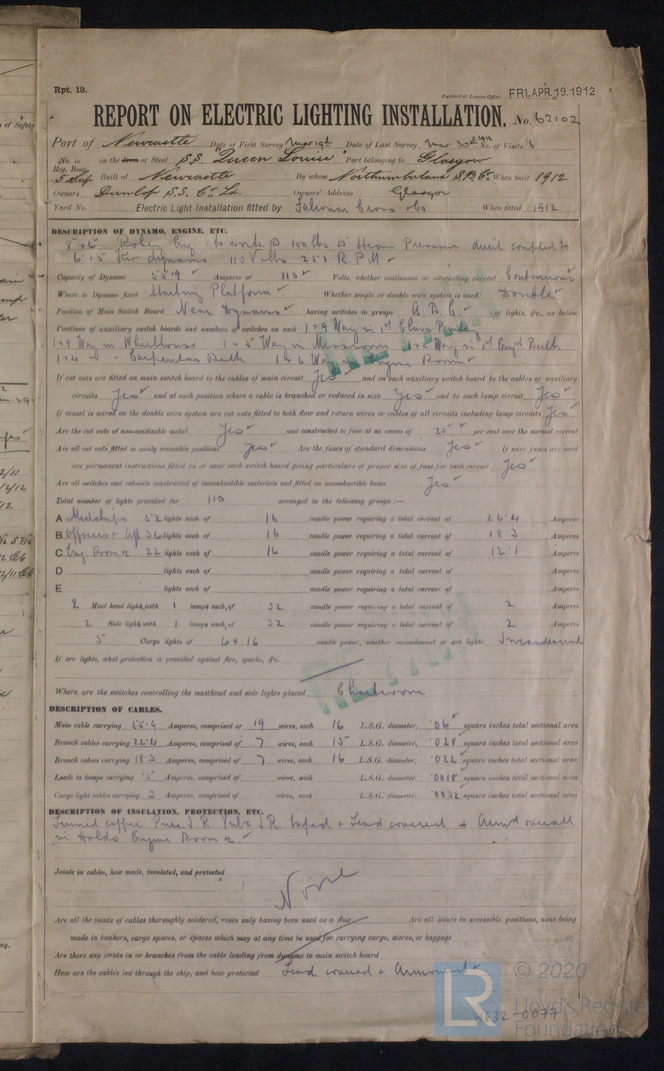 Rpt. 13.
Received at London Office FRI. APR. 19. 1912
REPORT ON ELECTRIC LIGHTING INSTALLATION. No. 62102
Port of Newcastle Date of First Survey Mar 19th Date of Last Survey Mar 30th 1912 No. of Visits 6
No. in Reg. Book on the Iron or Steel S.S. "Queen Louise" Port belonging to Glasgow
Built at Newcastle By whom Northumberland S.B. Co. When built 1912
Owners Dunlop S.S. Co. Ld. Owners' Address Glasgow
Yard No. Electric Light Installation fitted by Falconar Cross & Co When fitted 1912
DESCRIPTION OF DYNAMO, ENGINE, ETC.
Robey Eng to work @ 100 lbs Steam Pressure direct coupled to
dynamo 110 Volts R.P.M
Capacity of Dynamo 55.9 Amperes at 110 Volts, whether continuous or alternating current Continuous
Where is Dynamo fixed Starting Platform Whether single or double wire system is used Double
Position of Main Switch Board Near Dynamo having switches to groups A. B. C. of lights, &c., as below
Positions of auxiliary switch boards and numbers of switches on each 1 of 9 Way in 1st Class Pantry
1 of 9 Way in Wheelhouse 1 of 5 Way in Messroom Way in 1st Eng's Berth
1 of 4 Carpenters Berth 1 of 6 Way in Engine Room
If cut outs are fitted on main switch board to the cables of main circuit Yes and on each auxiliary switch board to the cables of auxiliary
circuits Yes and at each position where a cable is branched or reduced in size Yes and to each lamp circuit Yes
If vessel is wired on the double wire system are cut outs fitted to both flow and return wires or cables of all circuits including lamp circuits Yes
Are the cut outs of non-oxidizable metal Yes and constructed to fuse at an excess of 25 per cent over the normal current
Are all cut outs fitted in easily accessible positions Yes Are the fuses of standard dimensions Yes If wire fuses are used
are permanent instructions fitted on or near each switch board giving particulars of proper size of fuse for each circuit Yes
Are all switches and cutouts constructed of incombustible materials and fitted on incombustible bases Yes
Total number of lights provided for 110 arranged in the following groups :—
A Midships 52 lights each of 16 candle power requiring a total current of 26.4 Amperes
B Officers & Aft 36 lights each of 16 candle power requiring a total current of 18.3 Amperes
C Eng Room 22 lights each of 16 candle power requiring a total current of 12.1 Amperes
D lights each of candle power requiring a total current of Amperes
E lights each of candle power requiring a total current of Amperes
2 Mast head light with 1 lamps each of 32 candle power requiring a total current of 2 Amperes
2 Side light with 1 lamps each of 32 candle power requiring a total current of 2 Amperes
5 Cargo lights of 6 of 16 candle power, whether incandescent or arc lights Incandescent
If arc lights, what protection is provided against fire, sparks, &c.
Where are the switches controlling the masthead and side lights placed Chartroom
DESCRIPTION OF CABLES.
Main cable carrying 55.9 Amperes, comprised of 19 wires, each 16 L.S.G. diameter, .06 square inches total sectional area
Branch cables carrying 26.4 Amperes, comprised of 7 wires, each 15 L.S.G. diameter, .028 square inches total sectional area
Branch cables carrying 18.3 Amperes, comprised of 7 wires, each 16 L.S.G. diameter, .022 square inches total sectional area
Leads to lamps carrying .5 Amperes, comprised of wires, each L.S.G. diameter, .0018 square inches total sectional area
Cargo light cables carrying 3 Amperes, comprised of wires, each L.S.G. diameter, .0032 square inches total sectional area
DESCRIPTION OF INSULATION, PROTECTION, ETC.
Tinned copper Pure I.R. Vulc I.R. taped & Lead covered & Arm'd overall
in Holds Engine Room
Joints in cables, how made, insulated, and protected
None
Are all the joints of cables thoroughly soldered, resin only having been used as a flux Are all joints in accessible positions, none being
made in bunkers, cargo spaces, or spaces which may at any time be used for carrying cargo, stores, or baggage
Are there any joints in or branches from the cable leading from dynamo to main switch board
How are the cables led through the ship, and how protected Lead covered & Armoured
LR
© 2020
Lloyd's Register
Foundation
W632-0077